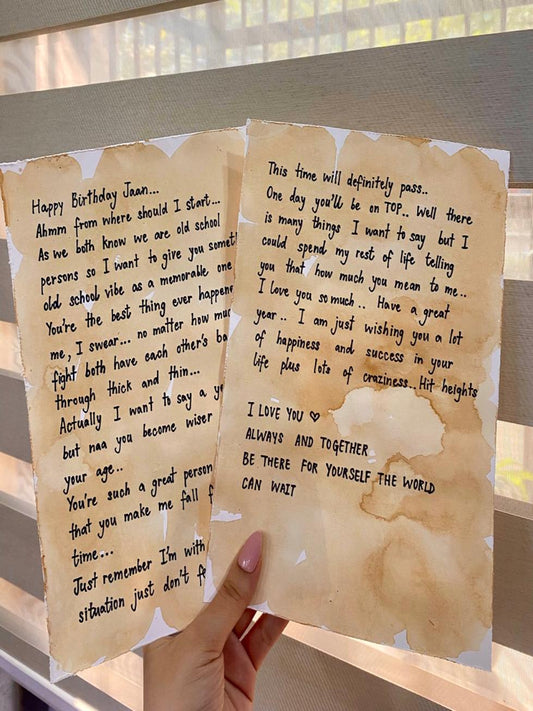 Happy Birthday Jaan...
Ahmm from where should I start...
As we both know we are old school
persons so I want to give you
old school vibe as a memorable one
You're the best thing ever
me, I swear... no matter how
fight both have each other's
through thick and thin...
Actually I want to say a
but naa you become wiser
your age..
You're such a great person
that you make me fall
time...
Just remember I'm with
situation just don't
This time will definitely pass..
One day you'll be on TOP.. Well there
is many things I want to say but I
could spend my rest of life telling
you that how much you mean to me..
I love you so much.. Have a great
year.. I am just wishing you a lot
of happiness and success in your
life plus lots of craziness.. Hit heights
I LOVE YOU ♡
ALWAYS AND TOGETHER
BE THERE FOR YOURSELF THE WORLD
CAN WAIT